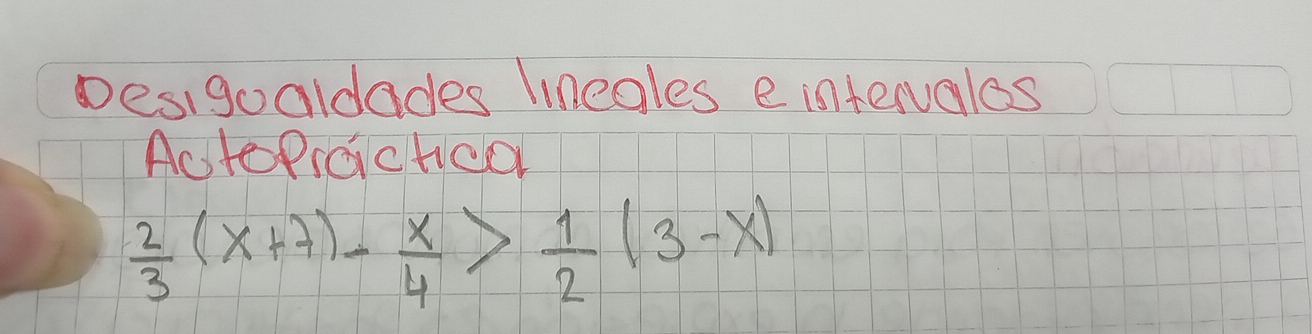 Desigualdades lineales e intervalos
Autopráctica
2/3 (x+7) - x/4 > 1/2 (3-x)